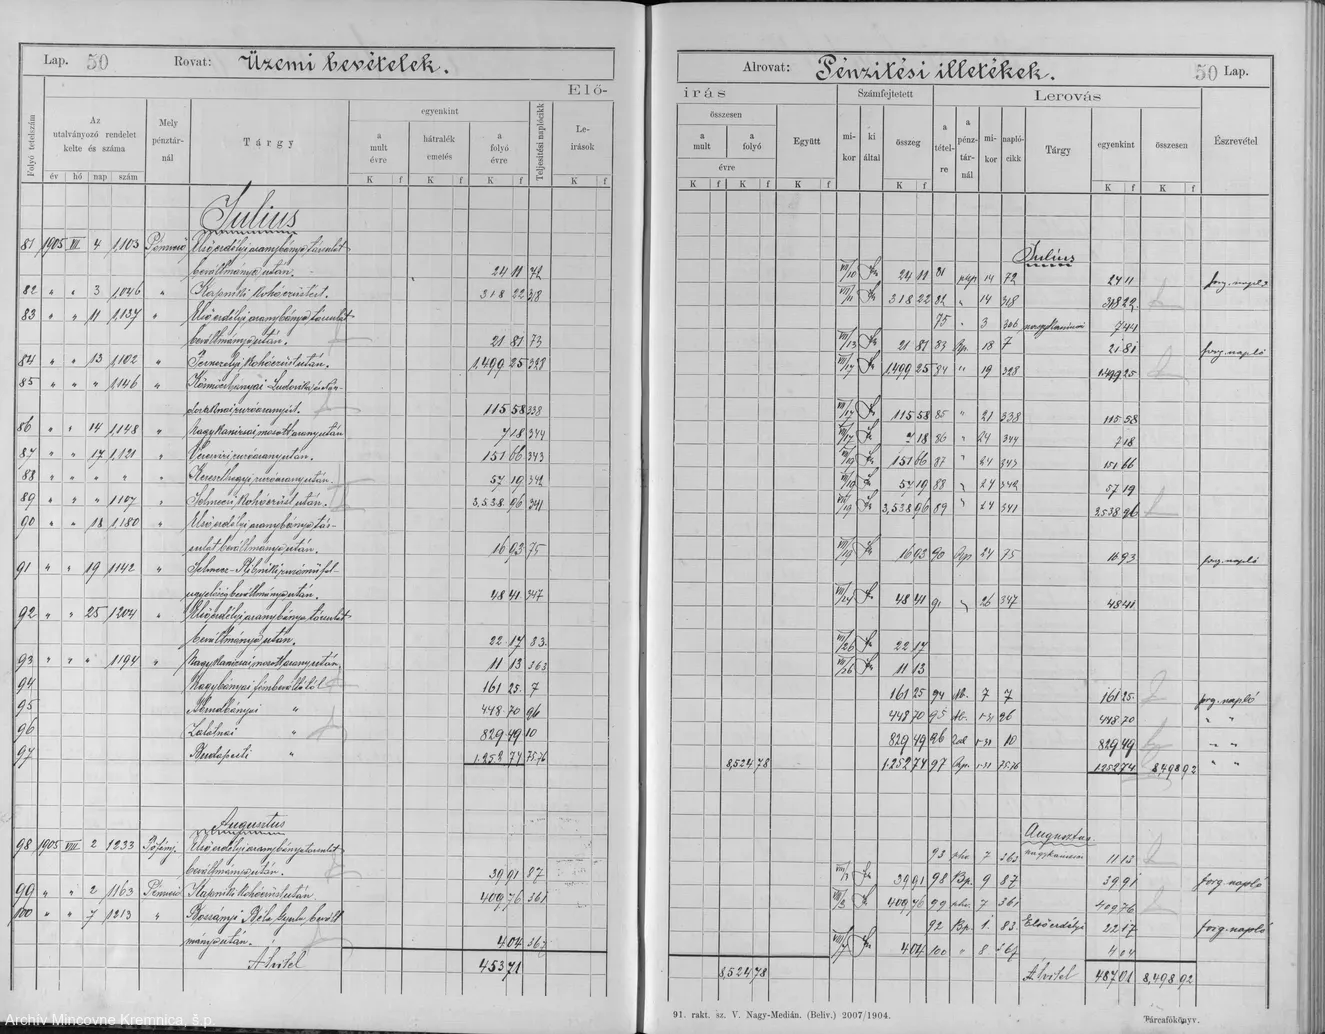 Lap. 50 Rovat: Üzemi bevételek.
Elő-
Folyó tételszám
Az utalványozó rendelet kelte és száma
év hó nap szám
Mely pénztár-nál
Tárgy
egyenkint
a mult évre
hátralék emetés
a folyó évre
Teljesítési naplócikk
Le-irások
K f K f K f K f
Julius
81 1905 VII. 4 1,103 Első erdélyi aranybánya társulat
beváltmánya után. 24 11 72
82 " " 3 1,046 " Kapniki kohóezüst 318 22 318
83 " " 11 1,137 " Első erdélyi aranybánya társulat
beváltmánya után. 21 81 73
84 " " 13 1,102 " kohóezüst után. 1,499 25 328
85 " " " 1,146 " Körmöczbányai Ludovika
115 58 338
86 " " 14 1,148 " Nagykanizsai mosott arany után 7 18 344
87 " " 17 1,121 " Verespataki 151 66 343
88 " " " " " Kereszthegyi után. 57 19 342
89 " " " 1107 " Selmeci kohóezüst után. 3,538 96 341
90 " " 18 1,180 " Első erdélyi aranybánya tár-
sulat beváltmánya után. 16 93 75
91 " " 19 1142 " Selmecz-
után. 48 41 347
92 " " 25 1204 Első erdélyi aranybánya társulat
beváltmánya után. 22 17 83.
93 " " " 1194 " Nagykanizsai mosott arany után 11 13 363
94 Nagybányai fémbeváltótól 161 25 7
95 Abrudbányai " 448 70 96
96 Zalatnai " 829 49 10
97 Budapesti " 1,252 74 75.76
Augusztus
98 1905 VIII. 2 1233 Első erdélyi aranybánya társulat
beváltmánya után. 39 91 87
99 " " 2 1163 Kapniki kohóezüst után 409 76 361
100 " " 7 1213 " Boszányi Béla bevált
mánya után. 4 04 367
Átvitel 453 71
Alrovat: Pénzitési illetékek. 50 Lap.
irás
összesen
a mult a folyó
évre
Együtt
Számfejtetett
mi-kor
ki által
összeg
Lerovás
a tétel-re
a pénz-tár-nál
mi-kor
napló-cikk
Tárgy
egyenkint
összesen
Észrevétel
K f K f K f K f K f K f
Julius
VII/10 24 11 81 14 72 24 11 forg. napló
VII/11 318 22 82 " 14 318 318 22
75 " 3 306 nagykanizsai 7 44
VII/13 21 81 83 Bp. 18 7 21 81 forg. napló
VII/17 1,499 25 84 " 19 328 1,499 25
VII/17 115 58 85 " 21 338 115 58
VII/17 7 18 86 " 24 344 7 18
VII/19 151 66 87 " 24 343 151 66
VII/19 57 19 88 " 24 342 57 19
VII/19 3,538 96 89 " 24 341 2538 96
VII/19 16 93 90 Bp. 24 75 16 93 forg. napló
VII/24 48 41 91 " 26 347 48 41
VII/26 22 17
VII/26 11 13
161 25 94 Nb. 7 7 161 25 forg. napló
448 70 95 Ab. 1-31 26 448 70 " "
829 49 96 Zal 1-31 10 829 49 " "
8,524 78 1,252 74 97 Bp. 1-31 75.76 1252 74 8,498 92 " "
Augusztus
93 7 363 nagykanizsai 11 13
39 91 98 Bp. 9 87 39 91 forg. napló
409 76 99 7 361 409 76
92 Bp. 1. 83. Első erdélyi 22 17 forg. napló
4 04 100 " 8 367 4 04
8,524 78 Átvitel 487 01 8,498 92
91. rakt. sz. V. Nagy-Medián. (Beliv.) 2007/1904.
Párcafőkönyv.
Archív Mincovne Kremnica, š.p.